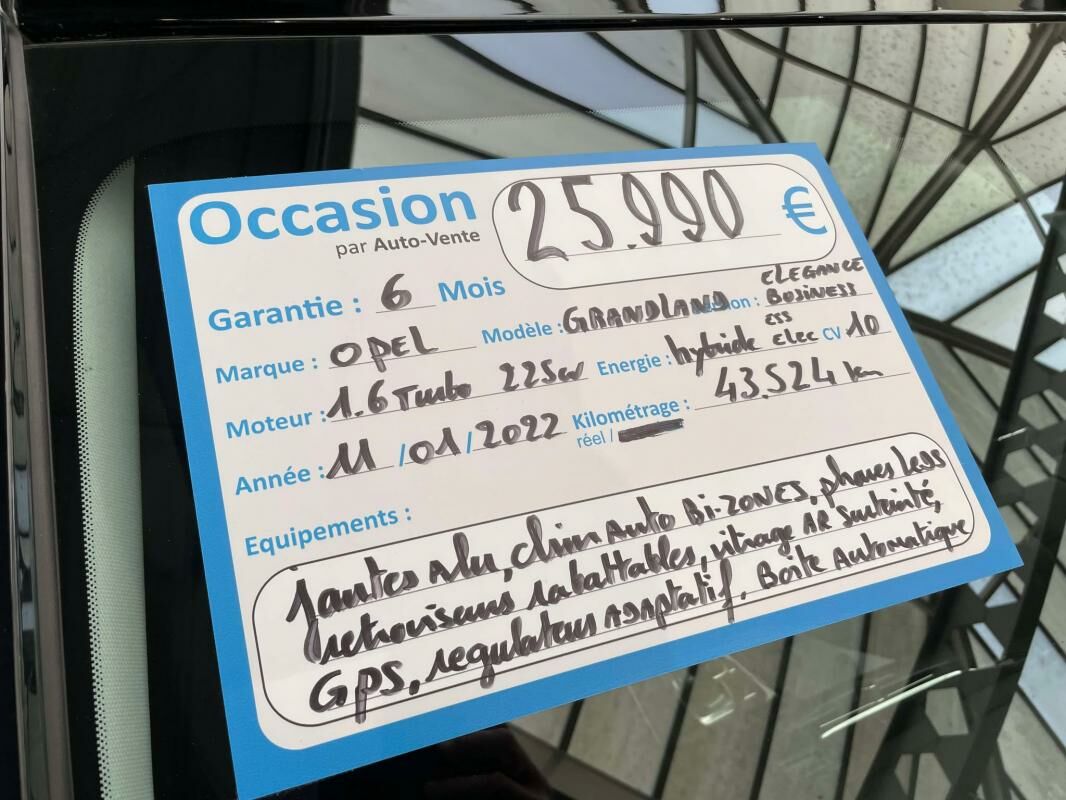 Occasion 25.990 €
par Auto-Vente
Garantie : 6 Mois
ELEGANCE
Marque : OPEL Modèle : GRANDLAND BUSINESS
ESS
Moteur : 1.6 Turbo 225cv Energie : hybride elec CV 10
Année : 11 / 01 / 2022 Kilométrage : 43.524 km
réel /
Equipements :
jantes Alu, clim Auto Bi-ZONES, phares Leds
retroviseurs rabattables, vitrage AR Surteinté,
GPS, regulateur ADAptatif. Boite Automatique